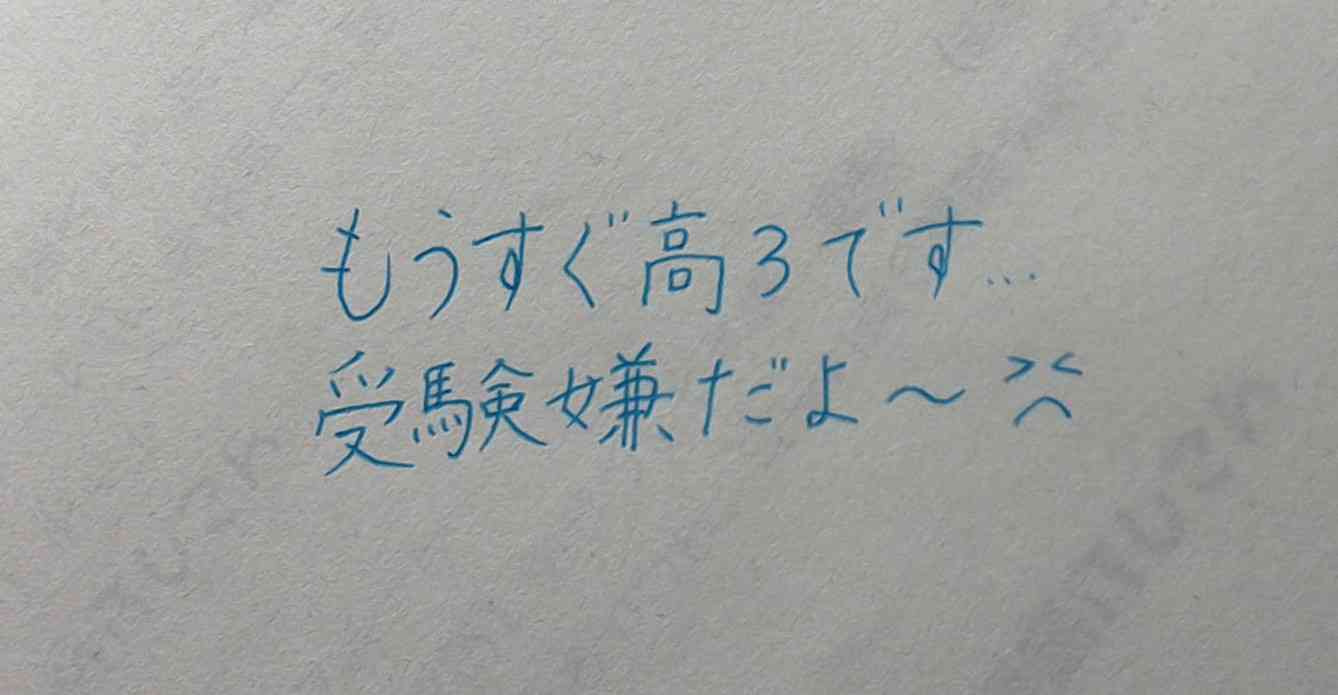 もうすぐ高3です...
受験嫌だよ～ ><